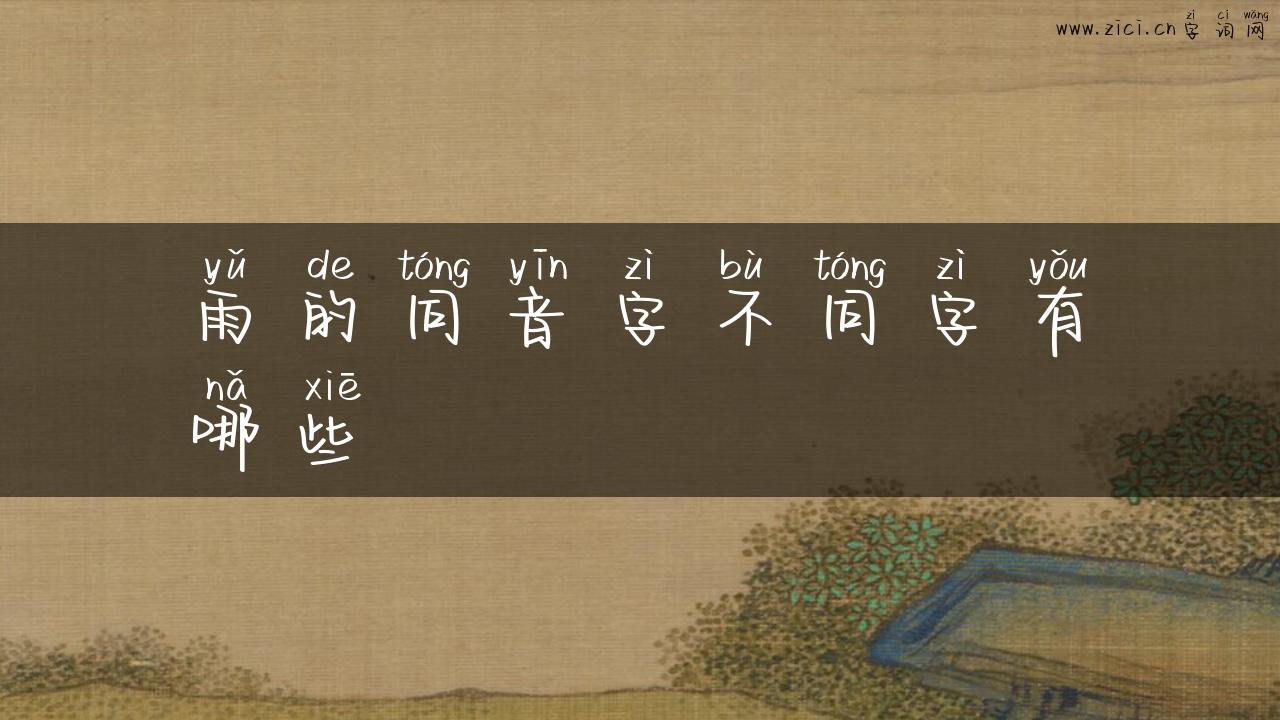 zì cí wǎng
www.zici.cn 字 词 网
yǔ de tóng yīn zì bù tóng zì yǒu
雨 的 同 音 字 不 同 字 有
nǎ xiē
哪 些